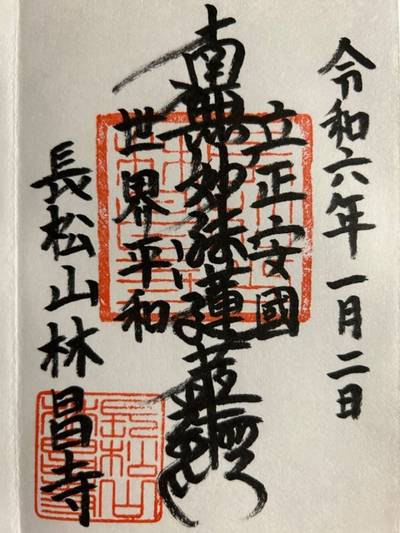 令和六年一月二日
立正安國
南無妙法蓮華経
世界平和
長松山林昌寺